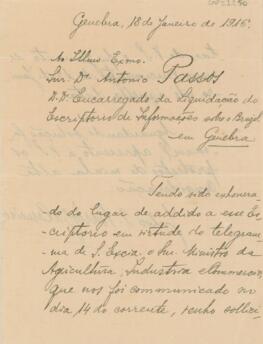 Genebra, 18 de Janeiro de 1915.
Ao Illmo Exmo.
Snr. Dr. Antonio Passos
D.D. Encarregado da Liquidação do
Escriptorio de Informações sobre Brazil
em Genebra
Sendo sido exonera
do do lugar de addido a esse Es
criptorio em virtude do telegram
ma de S. Excia. o Snr. Ministro da
Agricultura, Industria e Commercio,
que nos foi communicado no
dia 14 do corrente, venho sollici